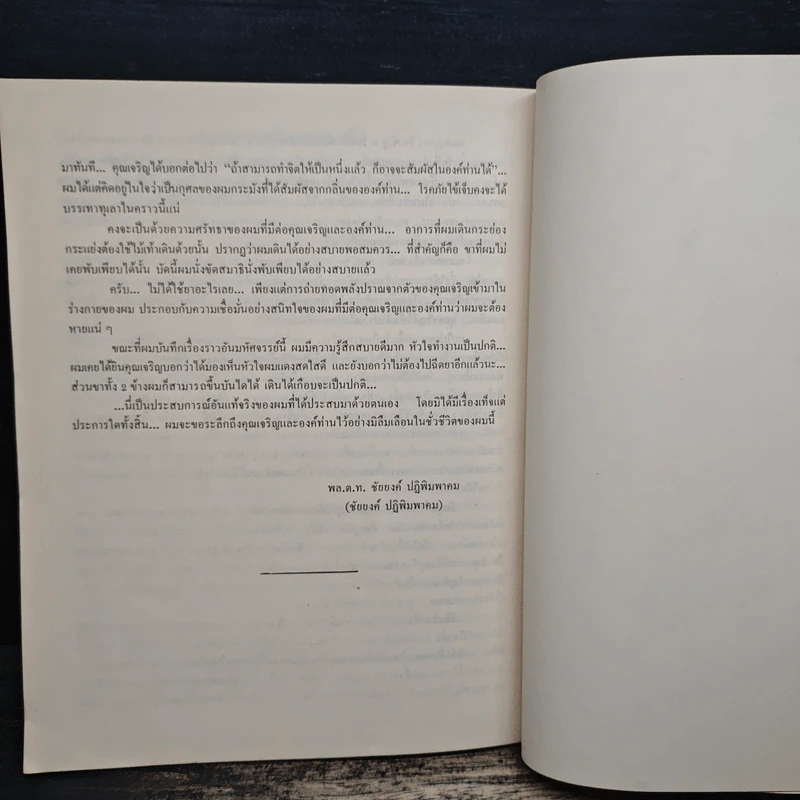 มาทันที... คุณเจริญได้บอกต่อไปว่า “ถ้าสามารถทำจิตให้เป็นหนึ่งแล้ว ก็อาจจะสัมผัสในองค์ท่านได้”...
ผมได้แต่คิดอยู่ในใจว่าเป็นกุศลของผมกระมังที่ได้สัมผัสจากกลิ่นขององค์ท่าน... โรคภัยไข้เจ็บคงจะได้
บรรเทาทุเลาในคราวนี้แน่
คงจะเป็นด้วยความศรัทธาของผมที่มีต่อคุณเจริญและองค์ท่าน... อาการที่ผมเดินกระย่อง
กระแย่งต้องใช้ไม้เท้าเดินด้วยนั้น ปรากฏว่าผมเดินได้อย่างสบายพอสมควร... ที่สำคัญก็คือ ขาที่ผมไม่
เคยพับเพียบได้นั้น บัดนี้ผมนั่งขัดสมาธินั่งพับเพียบได้อย่างสบายแล้ว
ครับ... ไม่ได้ใช้ยาอะไรเลย... เพียงแต่การถ่ายทอดพลังปราณจากตัวของคุณเจริญเข้ามาใน
ร่างกายของผม ประกอบกับความเชื่อมั่นอย่างสนิทใจของผมที่มีต่อคุณเจริญและองค์ท่านว่าผมจะต้อง
หายแน่ ๆ
ขณะที่ผมบันทึกเรื่องราวอันมหัศจรรย์นี้ ผมมีความรู้สึกสบายดีมาก หัวใจทำงานเป็นปกติ...
ผมเคยได้ยินคุณเจริญบอกว่าได้มองเห็นหัวใจผมแดงสดใสดี และยังบอกว่าไม่ต้องไปฉีดยาอีกแล้วนะ...
ส่วนขาทั้ง 2 ข้างผมก็สามารถขึ้นบันไดได้ เดินได้เกือบจะเป็นปกติ...
...นี่เป็นประสบการณ์อันแท้จริงของผมที่ได้ประสบมาด้วยตนเอง โดยมิได้มีเรื่องเท็จแต่
ประการใดทั้งสิ้น... ผมจะขอระลึกถึงคุณเจริญและองค์ท่านไว้อย่างมิลืมเลือนในชั่วชีวิตของผมนี้
พล.ต.ท. ชัยยงค์ ปฏิพิมพาคม
(ชัยยงค์ ปฏิพิมพาคม)